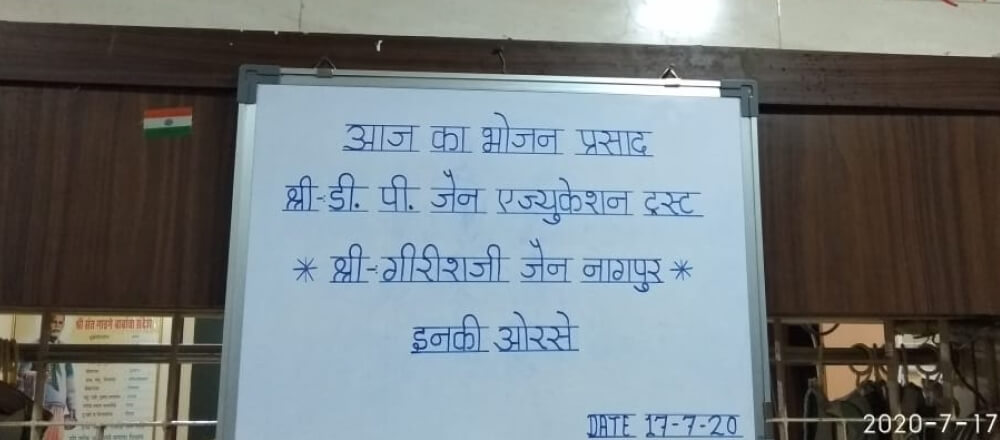 आज का भोजन प्रसाद
श्री-डी. पी. जैन एज्युकेशन ट्रस्ट
* श्री-गीरीशजी जैन नागपुर *
इनकी ओरसे
DATE 17-7-20
श्री संत गाडगे बाबांचा संदेश
2020-7-17